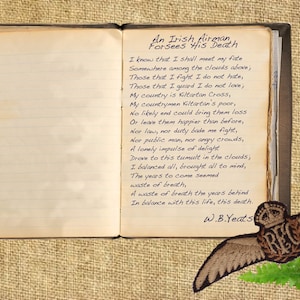 An Irish Airman
Forsees His Death
I know that I shall meet my fate
Somewhere among the clouds above;
Those that I fight I do not hate,
Those that I guard I do not love;
My country is Kiltartan Cross,
My countrymen Kiltartan's poor,
No likely end could bring them loss
Or leave them happier than before.
Nor law, nor duty bade me fight,
Nor public man, nor angry crowds,
A lonely impulse of delight
Drove to this tumult in the clouds;
I balanced all, brought all to mind,
The years to come seemed
waste of breath,
A waste of breath the years behind
In balance with this life, this death.
W.B.Yeats
RFC